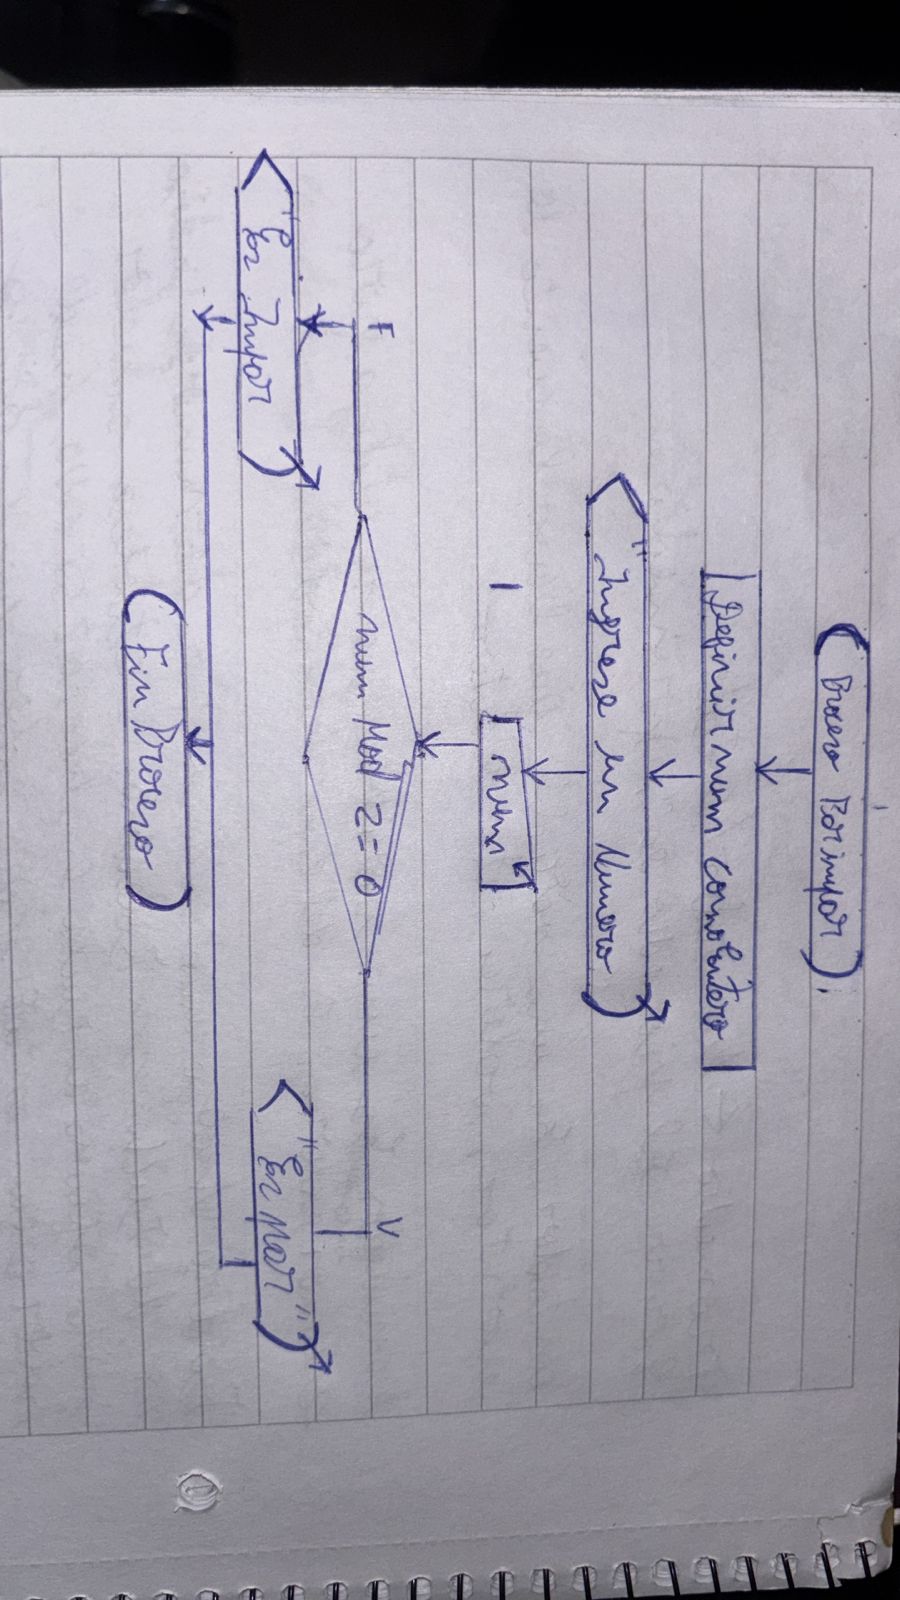 Proceso Parimpar
Definir num como Entero
"Ingrese un Numero
num
num Mod 2 = 0
F
V
"Es Impar
"Es Par"
Fin Proceso